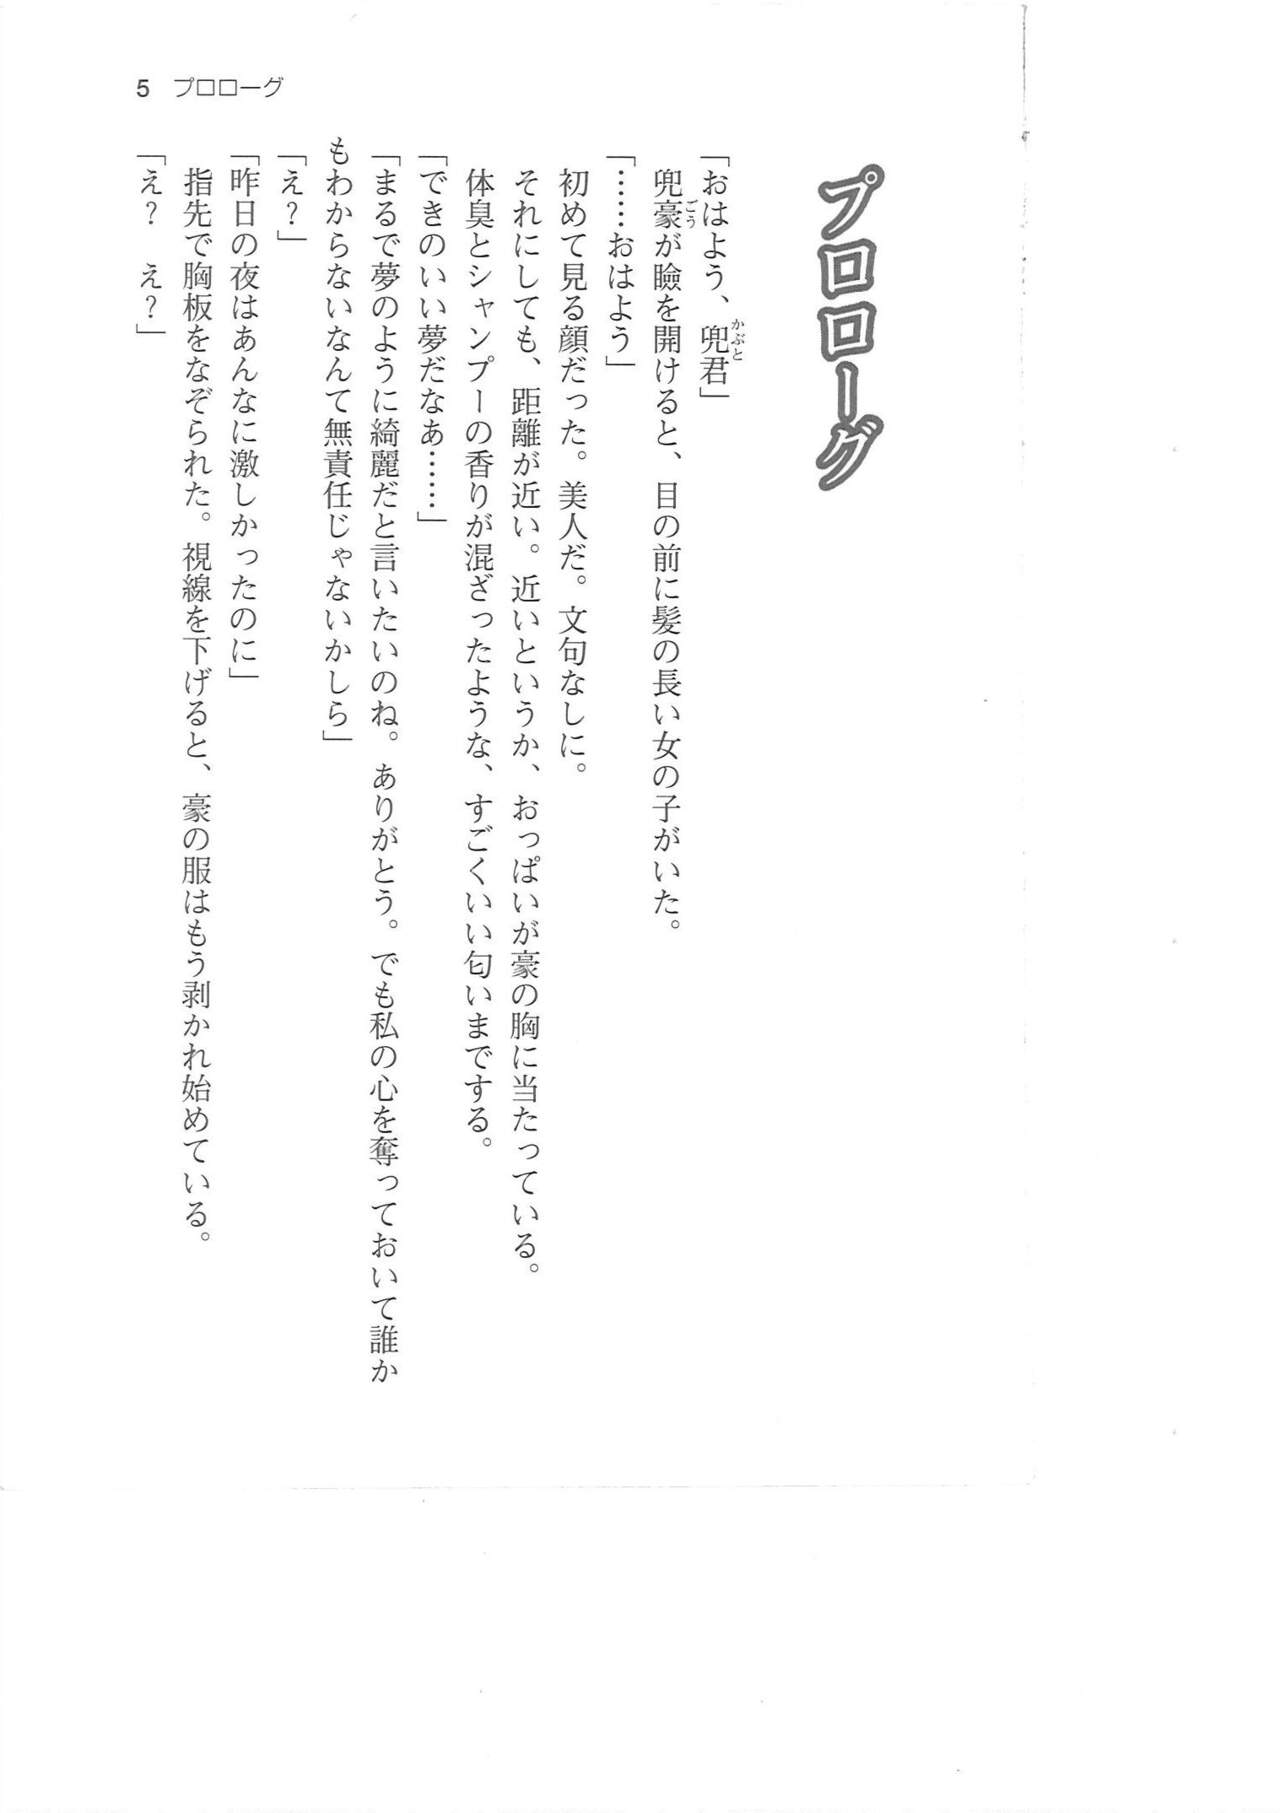 プロローグ
「おはよう、兜君」
兜豪が瞼を開けると、目の前に髪の長い女の子がいた。
「……おはよう」
初めて見る顔だった。美人だ。文句なしに。
それにしても、距離が近い。近いというか、おっぱいが豪の胸に当たっている。
体臭とシャンプーの香りが混ざったような、すごくいい匂いまでする。
「できのいい夢だなあ……」
「まるで夢のように綺麗だと言いたいのね。ありがとう。でも私の心を奪っておいて誰か
もわからないなんて無責任じゃないかしら」
「え？」
「昨日の夜はあんなに激しかったのに」
指先で胸板をなぞられた。視線を下げると、豪の服はもう剥かれ始めている。
「え？　え？」
5 プロローグ